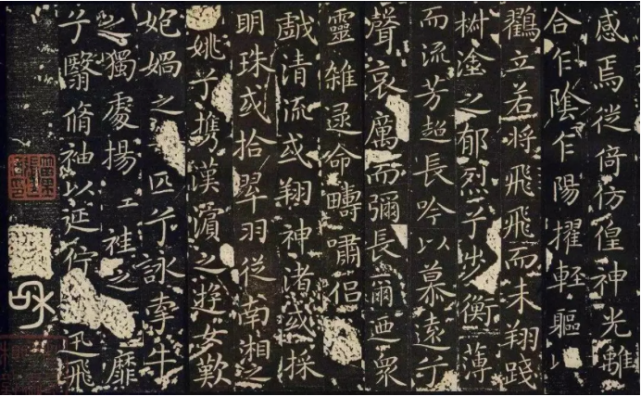 感焉徙倚彷徨神光離
合乍陰乍陽擢輕軀以
鸖立若將飛飛而未翔踐
椒塗之郁烈兮步衡薄
而流芳超長吟以慕遠兮
聲哀厲而彌長爾迺衆
靈雜遝命疇嘯侶
戲清流或翔神渚或採
明珠或拾翠羽從南湘之
姚兮携漢濱之遊女歎
媧之匹兮詠牽牛
之獨處揚袿之靡
兮翳脩袖以延佇迅飛